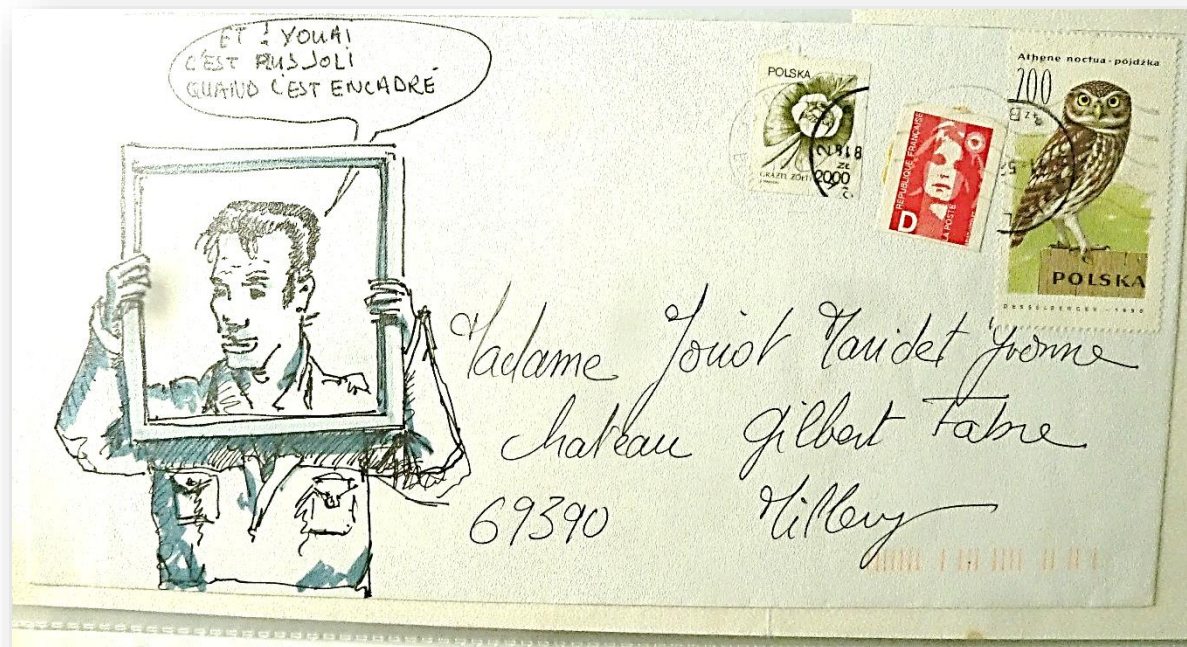 ET ! YOUAI
C'EST PLUS JOLI
QUAND C'EST ENCADRÉ
POLSKA
2000
ZŁ
8 18 12
REPUBLIQUE FRANÇAISE
LA POSTE
D
Athene noctua - pójdźka
200
POLSKA
1990
Madame Joriot Maridet Yvonne
chateau Gilbert Fabre
69390 Millery